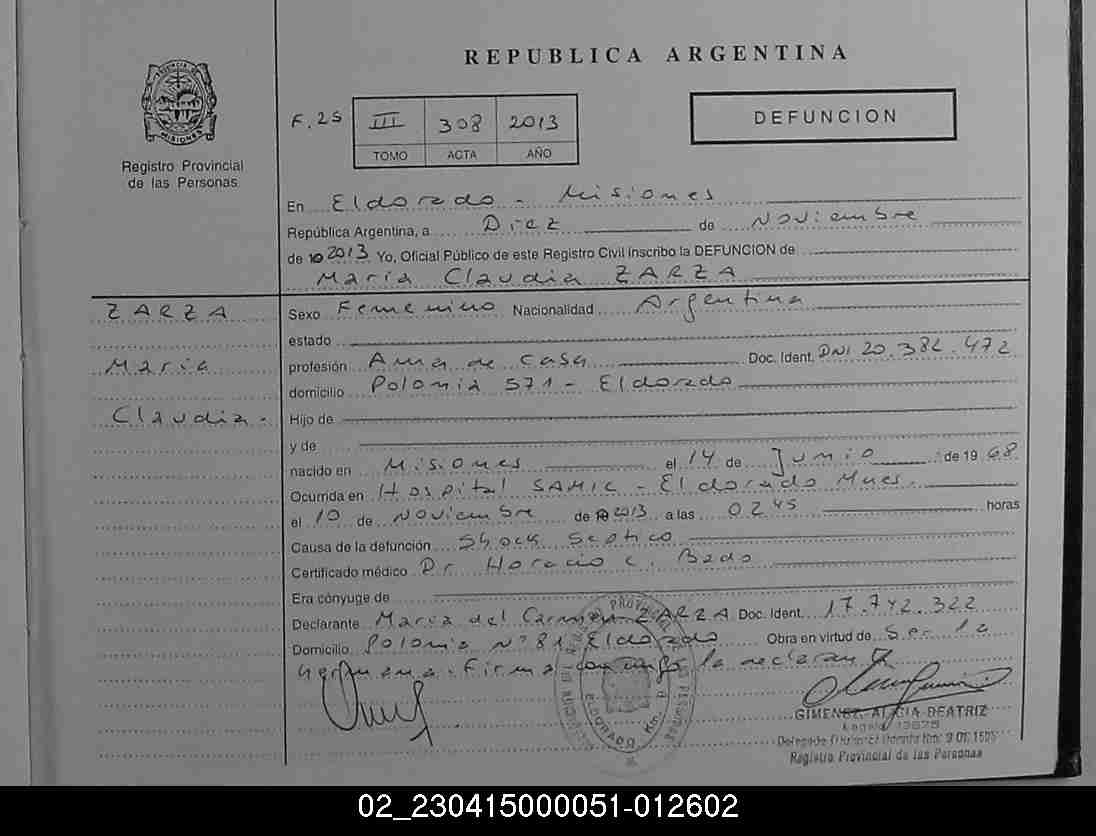 REPUBLICA ARGENTINA
PROVINCIA DE
MISIONES
Registro Provincial
de las Personas
F.25 III 308 2013
TOMO ACTA AÑO
DEFUNCION
En Eldorado - Misiones
República Argentina, a Diez de Noviembre
de 2013 Yo, Oficial Público de este Registro Civil inscribo la DEFUNCION de
Maria Claudia ZARZA
ZARZA
Maria
Claudia.-
Sexo Femenino Nacionalidad Argentina
estado
profesión Ama de casa Doc. Ident. DNI 20.382.472
domicilio Polonia 571 - Eldorado
Hijo de
y de
nacido en Misiones el 14 de Junio de 1968
Ocurrida en Hospital SAMIC - Eldorado Mnes.
el 10 de Noviembre de 2013 a las 0245 horas
Causa de la defunción Shock Septico
Certificado médico Dr Horacio C. Bado
Era cónyuge de
Declarante Maria del Carmen ZARZA Doc. Ident. 17.742.322
Domicilio Polonia N° 81 Eldorado Obra en virtud de Ser la
hermana. Firma conmigo la declarante
ELDORADO Km. 9
GIMENEZ, ALICIA BEATRIZ
Registro Provincial de las Personas
02_230415000051-012602